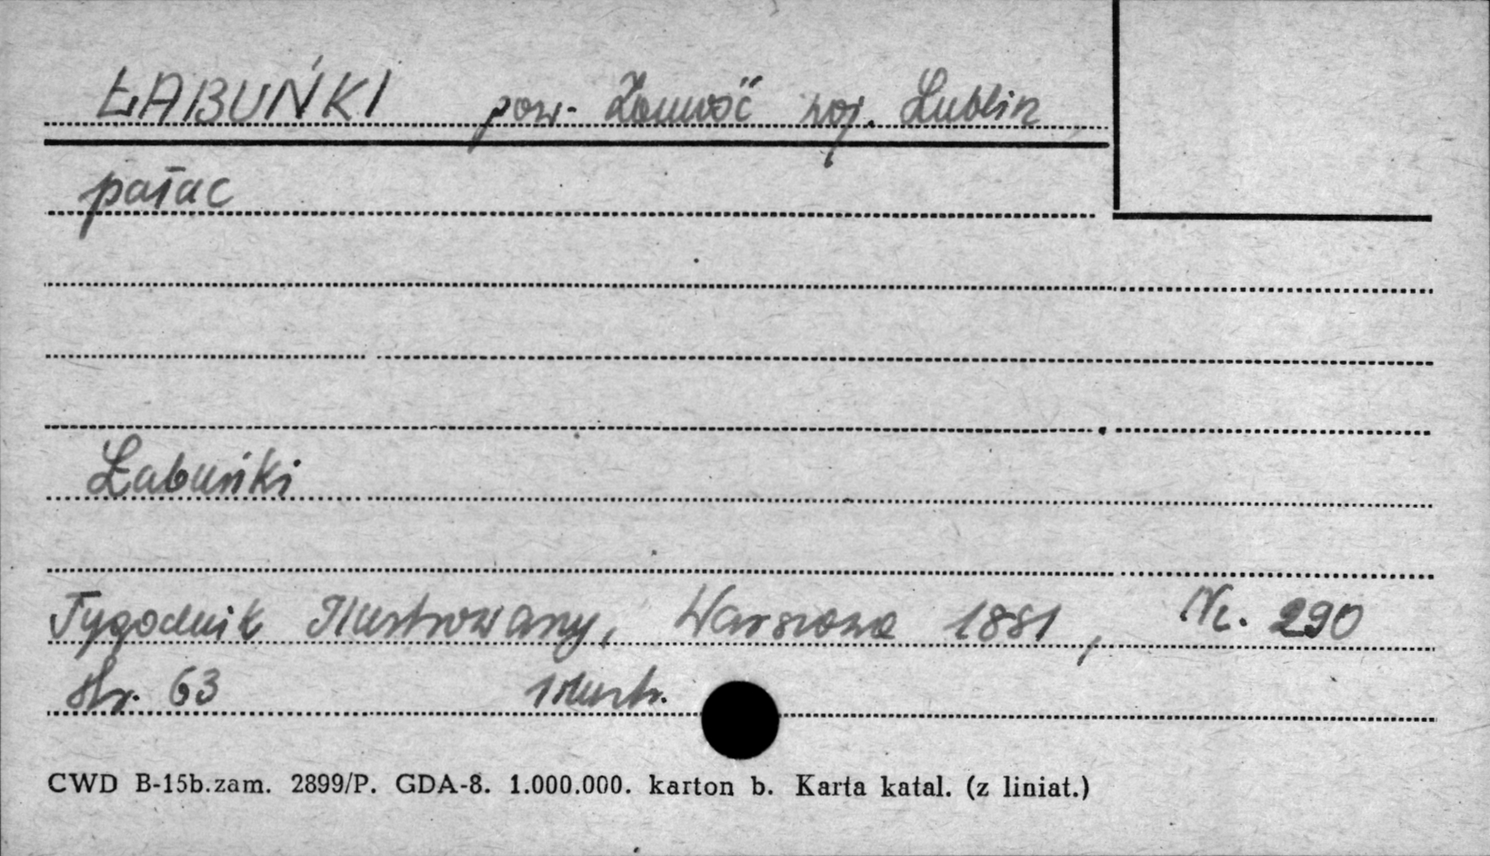 ŁABUŃKI pow. Zamość woj. Lublin
pałac
Łabuńki
Tygodnik Ilustrowany, Warszawa 1881, Nr. 290
str. 63 1 ilustr.
CWD B-15b.zam. 2899/P. GDA-8. 1.000.000. karton b. Karta katal. (z liniat.)